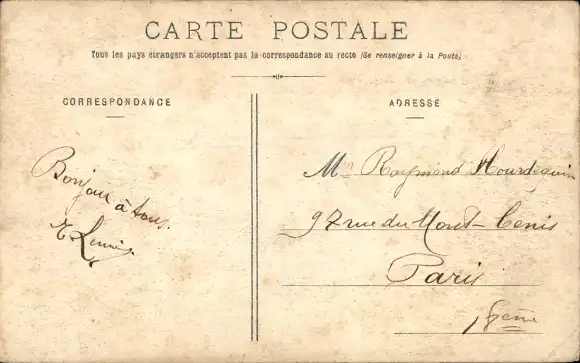 CARTE POSTALE
Tous les pays étrangers n'acceptent pas la correspondance au recto (Se renseigner à la Poste)
CORRESPONDANCE
ADRESSE
Bonjour à tous.
Mr Raymond Hourdequin
97 rue du Mont-Cenis
Paris
18eme